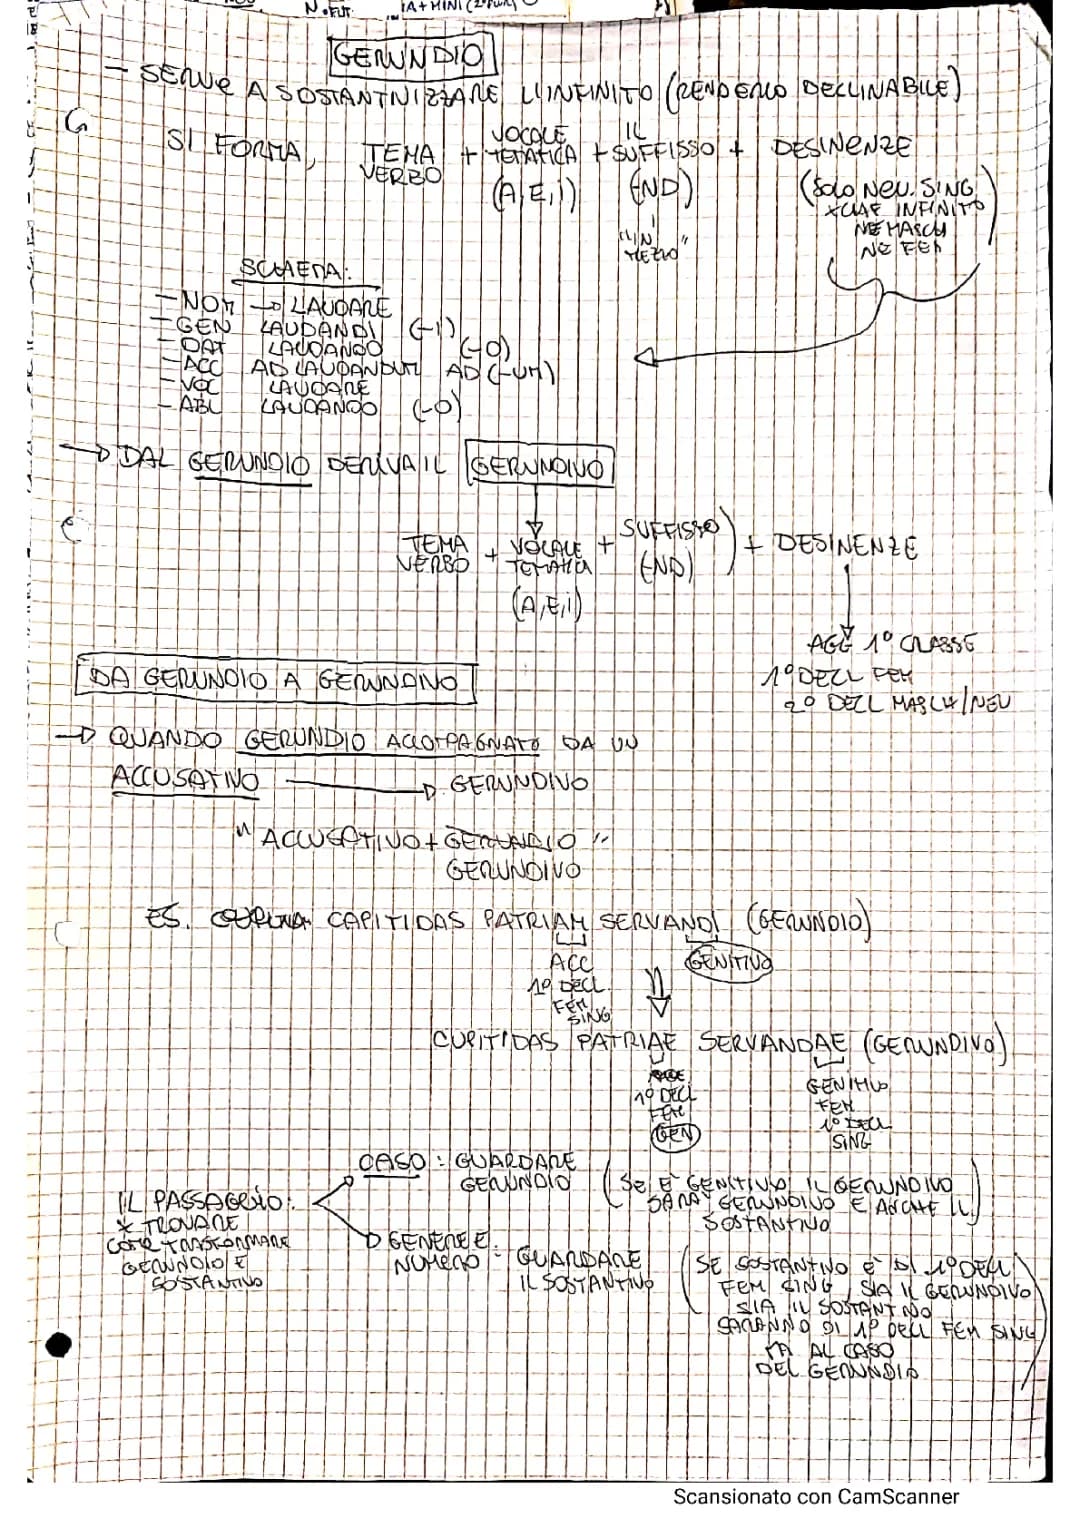 N.FUT.
IA+MINI (2°PLUR)
GERUNDIO
- SERVE A SOSTANTIVIZZARE L'INFINITO (RENDERLO DECLINABILE)
SI FORMA, TEMA VERBO + VOCALE TEMATICA + IL SUFFISSO + DESINENZE
(A,E,i)
(ND)
(SOLO NEU. SING
INFINITO
NE MASCH
NE FEM
"IN MEZZO"
SCHEMA:
- NOM → LAUDARE
- GEN LAUDANDI (-I)
- DAT LAUDANDO (-O)
- ACC AD LAUDANDUM AD (-UM)
- VOC LAUDARE
- ABL LAUDANDO (-O)
→ DAL GERUNDIO DERIVA IL GERUNDIVO
TEMA VERBO + VOCALE TEMATICA + SUFFISSO) + DESINENZE
(ND)
(A,E,i)
AGG 1° CLASSE
1° DECL FEM
2° DECL MASCH/NEU
DA GERUNDIO A GERUNDIVO
→ QUANDO GERUNDIO ACCOMPAGNATO DA UN
ACCUSATIVO → GERUNDIVO
"ACCUSATIVO + GERUNDIO"
GERUNDIVO
ES. CAPITIDAS PATRIAM SERVANDI (GERUNDIO)
ACC
1° DECL
FEM
SING
GENITIVO
CUPITIDAS PATRIAE SERVANDAE (GERUNDIVO)
1° DECL
FEM
GEN
GENITIVO
FEM
1° DECL
SING
IL PASSAGGIO:
X TROVARE
COME TRASFORMARE
GERUNDIO E
SOSTANTIVO
CASO: GUARDARE
GERUNDIO
(SE È GENITIVO IL GERUNDIVO
SARA' GERUNDIVO E ANCHE IL
SOSTANTIVO)
GENERE E
NUMERO: GUARDARE
IL SOSTANTIVO
(SE SOSTANTIVO È DI 1° DECL
FEM SING, SIA IL GERUNDIVO
SIA IL SOSTANTIVO
SARANNO DI 1° DECL FEM SING
MA AL CASO
DEL GERUNDIO
Scansionato con CamScanner